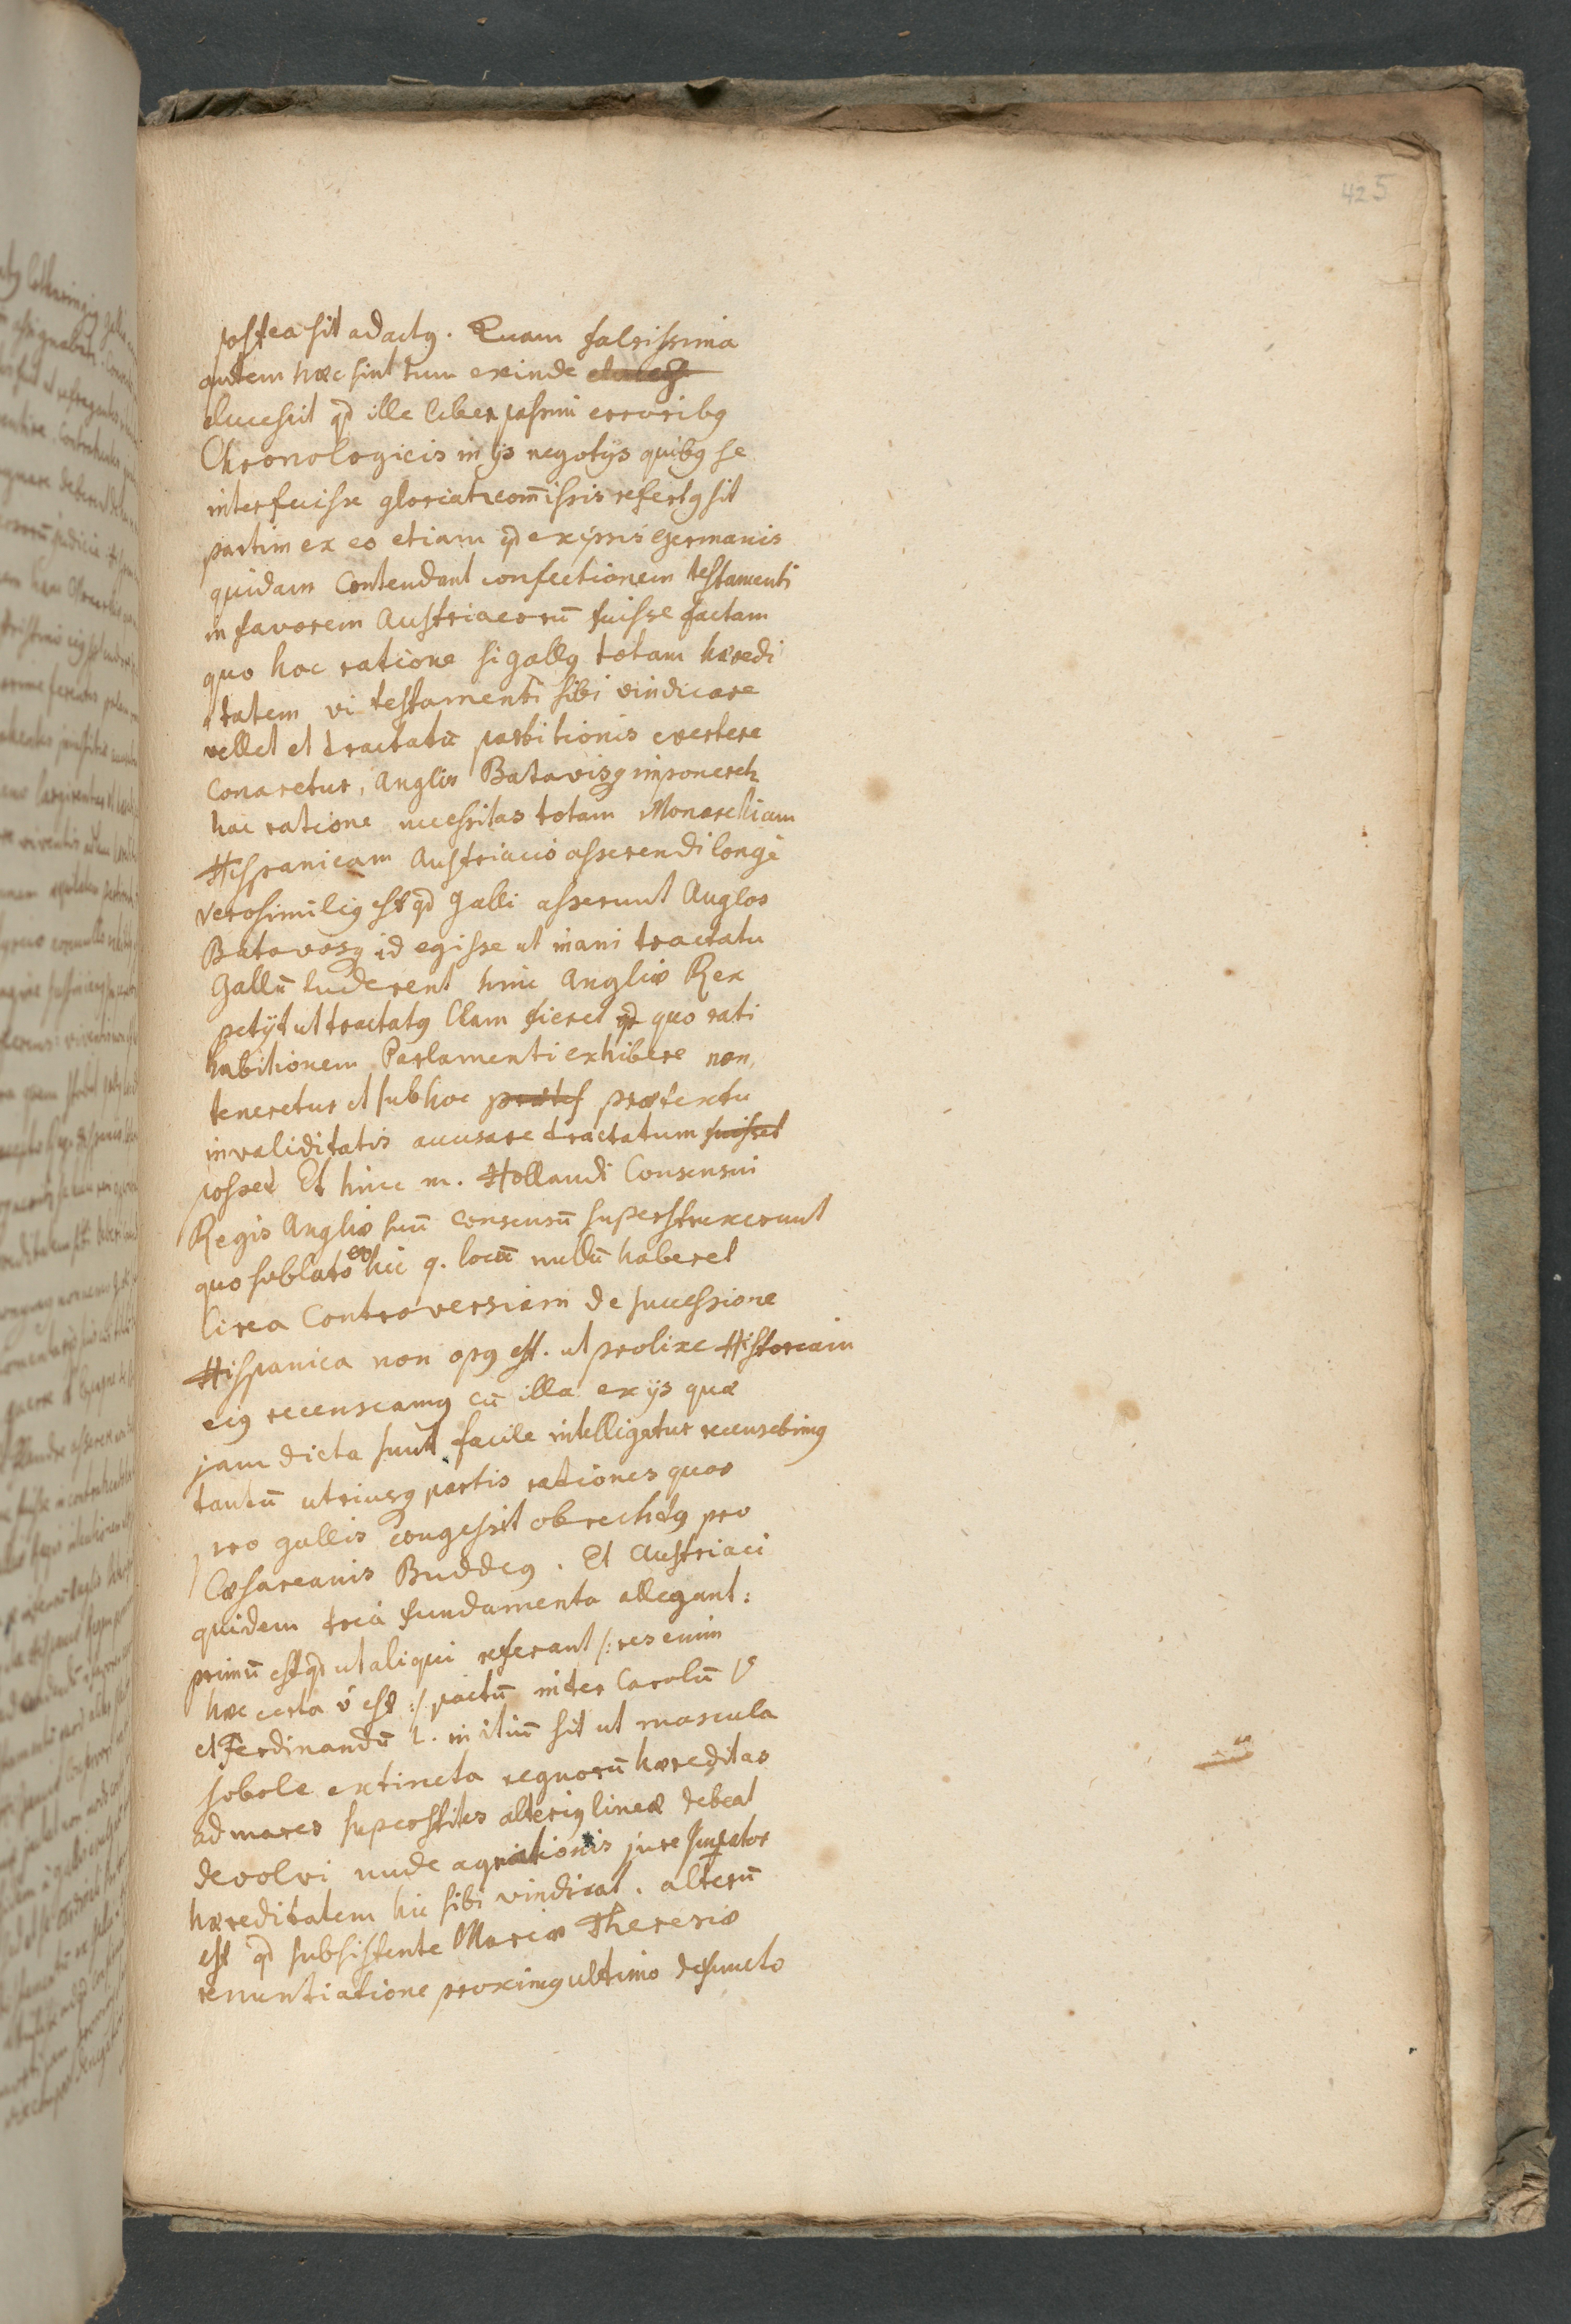 425
postea sit adactꝯ. Quam falsissima
autem hæc sint tum exinde
elucescit qd ille liber passim erroribꝯ
Chronologicis in ijs negotijs quibꝯ se
interfuisse gloriatr com̄issis refertꝯ sit
partim ex eo etiam qd ex ipsis Germanis
quidam Contendant confectionem testamenti
in favorem Austriacorū fuisse factam
quo hac ratione si Gallꝯ totam hæredi
tatem vi testamenti sibi vindicare
vellet et tractatū partitionis evertere
Conaretur, Anglis Batavisqꝫ imponeretr
hac ratione necessitas totam Monarchiam
Hispanicam Austriacis asserendi longè
verosimiliꝯ est qd Galli asserunt Anglos
Batavosqꝫ id egisse ut inani tractatu
Gallū luderent hinc Angliæ Rex
petijt ut tractatꝯ Clam fieret quo rati
habitionem Parlamenti exhibere non
teneretur et sub hoc prætextu
invaliditatis accusare tractatum
posset Et hinc m. Hollandi Consensui
Regis Angliæ suū consensū superstruxerunt
quo sublato eo hic q. locū nullū haberet
Circa Controversiam de successione
Hispanica non opꝯ est. ut prolixe Historiam
eiꝯ recenseamꝯ cū illa ex ijs quæ
jam dicta sunt facile intelligatur recensebimꝯ
tantū utriusqꝫ partis rationes quas
pro Gallis congessit obrechtꝯ pro
Cæsareanis Buddeꝯ. Et Austriaci
quidem tria fundamenta allegant:
primū est qd ut aliqui referant /: res enim
hæc certa ñ est :/ pactū inter Carolū V
et Ferdinandū I. initū sit ut mascula
sobole extincta regnorū hæreditas
ad mares superstites alteriꝯ lineæ debeat
devolvi unde agnationis jure Imperator
hæreditatem hic sibi vindicat. alterū
est qd subsistente Mariæ Theresiæ
renuntiatione proximꝯ ultimo defuncto